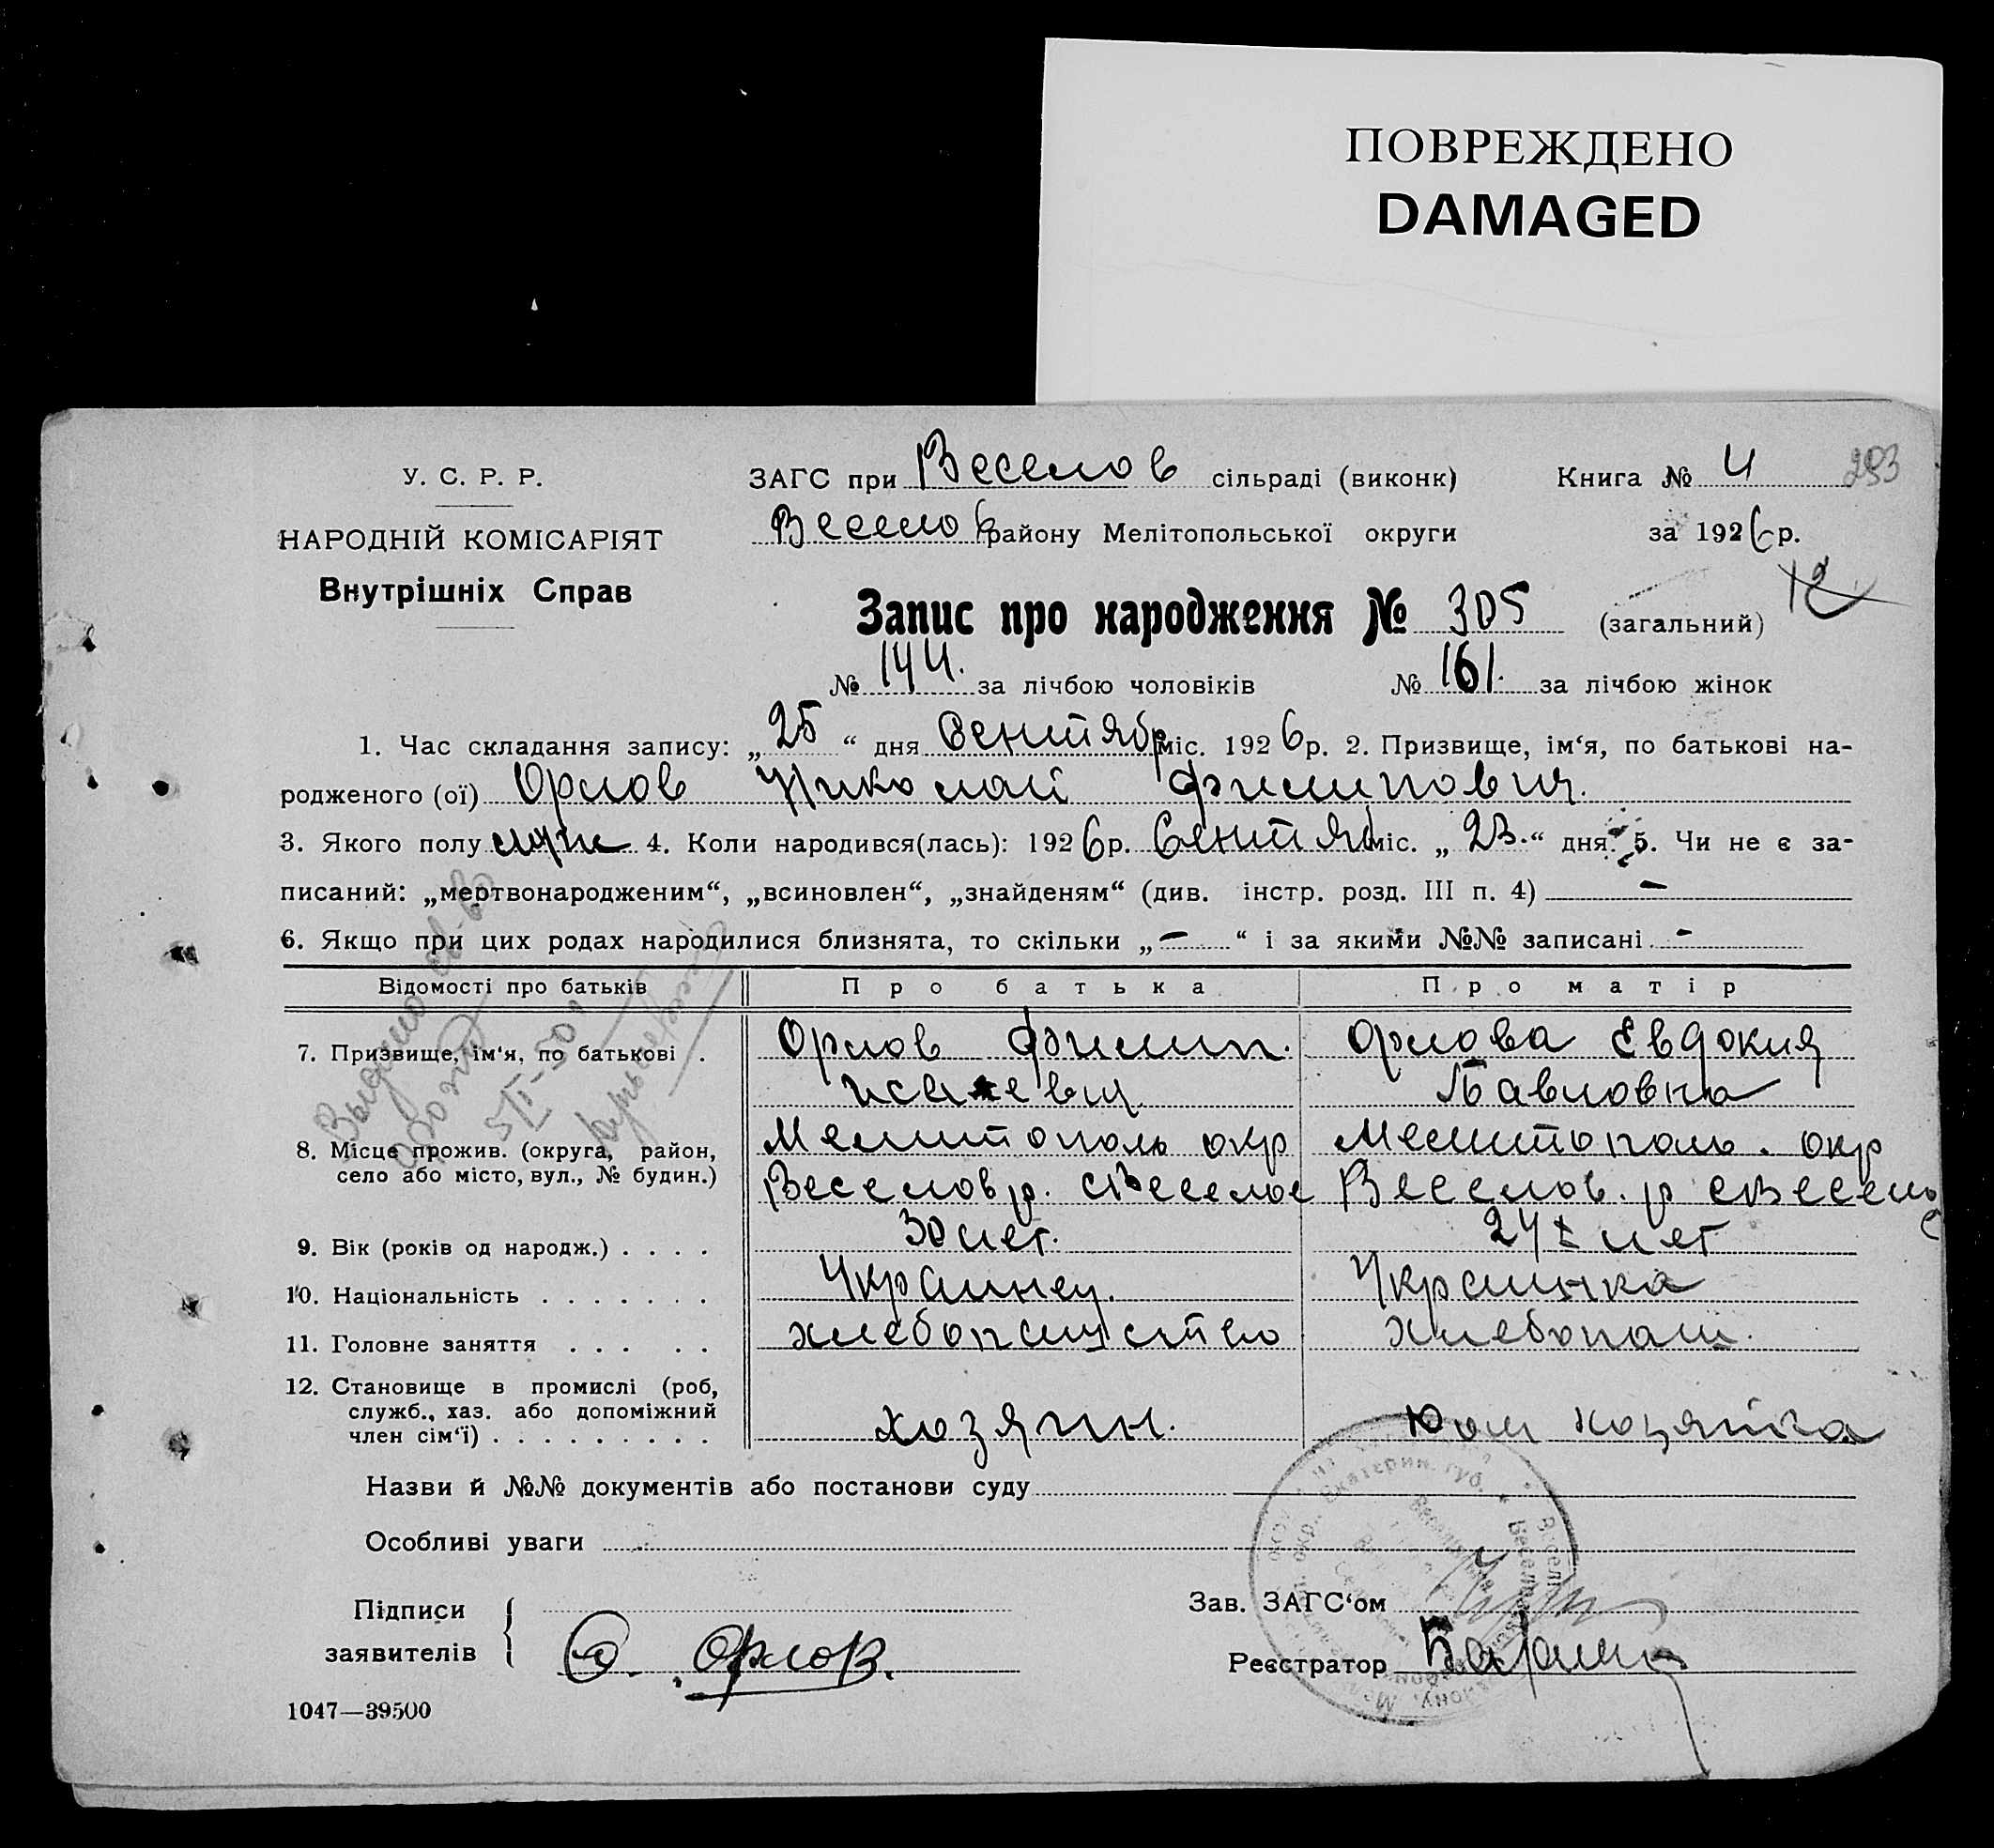 ПОВРЕЖДЕНО
DAMAGED
У. С. Р. Р.
НАРОДНІЙ КОМІСАРІЯТ
Внутрішніх Справ
ЗАГС при Веселов сільраді (виконк)
Веселов району Мелітопольської округи
Книга № 4 293
за 1926 р.
12
Запис про народження № 305 (загальний)
№ 144. за лічбою чоловіків № 161. за лічбою жінок
1. Час складання запису: „25“ дня Сентябр міс. 1926 р. 2. Призвище, ім‘я, по батькові на-
родженого (ої) Орлов Николай Филипович.
3. Якого полу муж 4. Коли народився(лась): 1926 р. Сентяб міс. „23.“ дня. 5. Чи не є за-
писаний: „мертвонародженим“, „всиновлен“, „знайденям“ (див. інстр. розд. III п. 4) –
6. Якщо при цих родах народилися близнята, то скільки „–“ і за якими №№ записані. -
Відомості про батьків Про батька Про матір
7. Призвище, ім‘я, по батькові . Орлов Филип. Орлова Евдокия
Исаевич. Павловна
8. Місце прожив. (округа, район, Мелитополь окр Мелитополь. окр
село або місто, вул., № будин.) Веселов р. с Веселое Веселов. р с Веселое
9. Вік (років од народж.) . . . . 30 лет. 24 лет
10. Національність . . . . . . . Украинец. Украинка
11. Головне заняття . . . . . хлебопашество Хлебопаш.
12. Становище в промислі (роб,
служб., хаз. або допоміжний
член сім‘ї) . . . . . . . . . хозяин. Дом хозяйка
Выдано св-во
о рожд
5/II-50
Назви й №№ документів або постанови суду
Особливі уваги
Підписи
заявителів
Ф. Орлов.
Зав. ЗАГС‘ом
Реєстратор
Екатерин. губ.
1047—39500